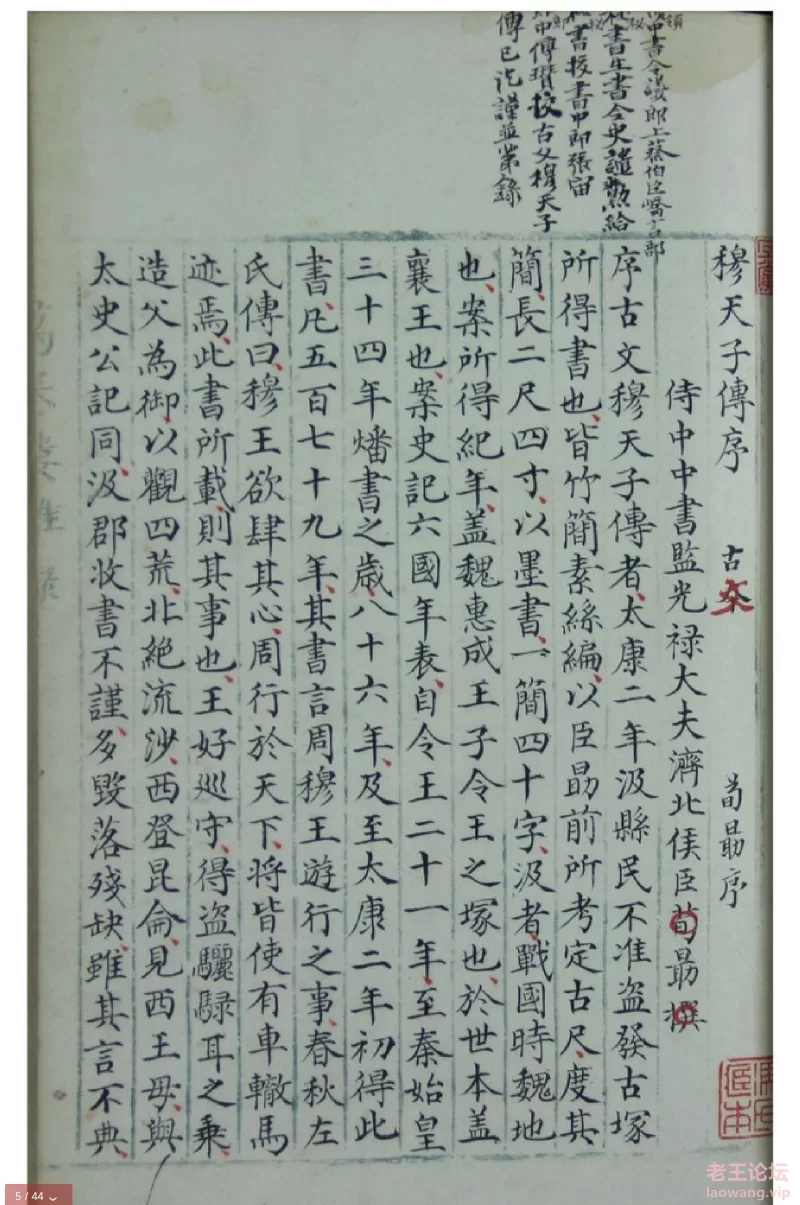 穆天子傳序 古文 荀勗序
侍中中書監光禄大夫濟北侯臣荀勗撰
序古文穆天子傳者太康二年汲縣民不准盗發古塚
所得書也皆竹簡素絲編以臣勗前所考定古尺度其
簡長二尺四寸以墨書一簡四十字汲者戰國時魏地
也案所得紀年盖魏惠成王子令王之塚也於世本盖
襄王也案史記六國年表自令王二十一年至秦始皇
三十四年燔書之歲八十六年及至太康二年初得此
書凡五百七十九年其書言周穆王遊行之事春秋左
氏傳曰穆王欲肆其心周行於天下將皆使有車轍馬
迹焉此書所載則其事也王好巡守得盗驪騄耳之乗
造父為御以觀四荒北絶流沙西登昆侖見西王母與
太史公記同汲郡收書不謹多毀落殘缺雖其言不典
中書令議郎上蔡伯臣嶠言部
秘書主書令史譴勲給
秘書校書中郎張宙
郎中傅瓉校古文穆天子
傳已訖謹並第錄
5 / 44
老王论坛
laowang.vip